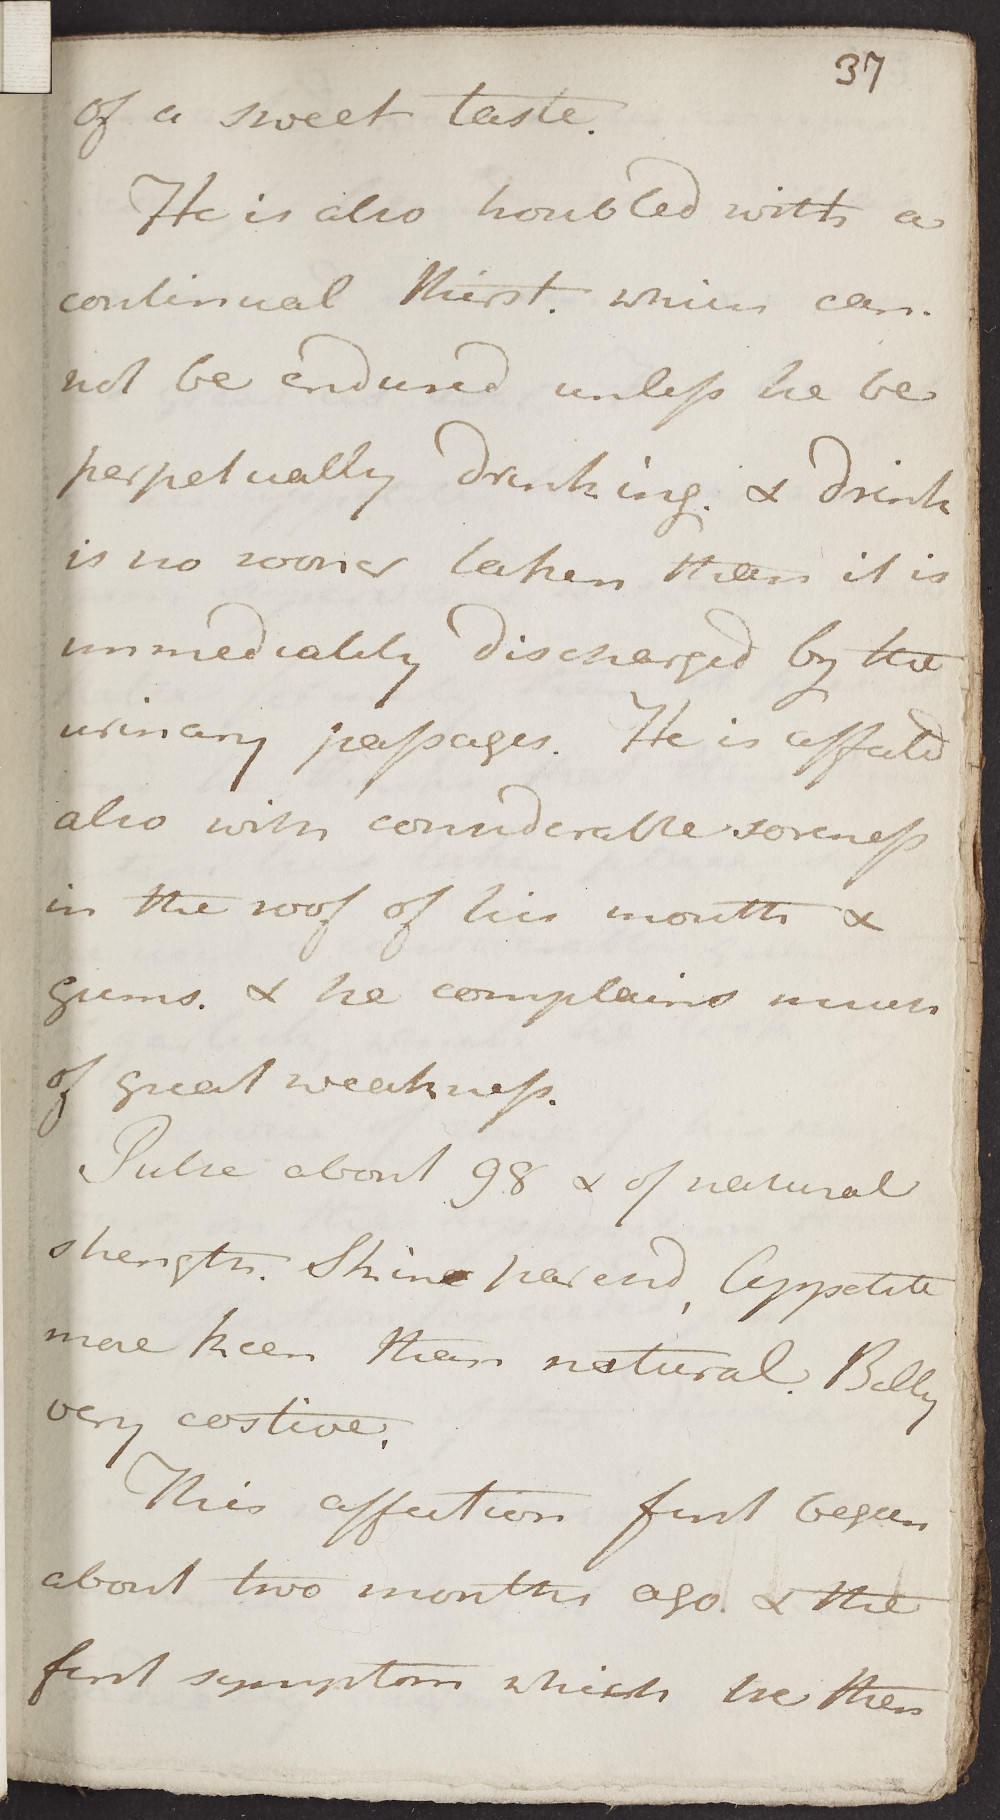 37
of a sweet taste.
He is also troubled with a
continual thirst. which can-
not be endured unless he be
perpetually drinking. & drink
is no sooner taken than it is
immediately discharged by the
urinary passages. He is affected
also with considerable soreness
in the roof of his mouth &
gums. & he complains much
of great weakness.
Pulse about 98 & of natural
strength. Skin parch'd, Appetite
more keen than natural. Belly
very costive.
This affection first began
about two months ago. & the
first symptom which he then